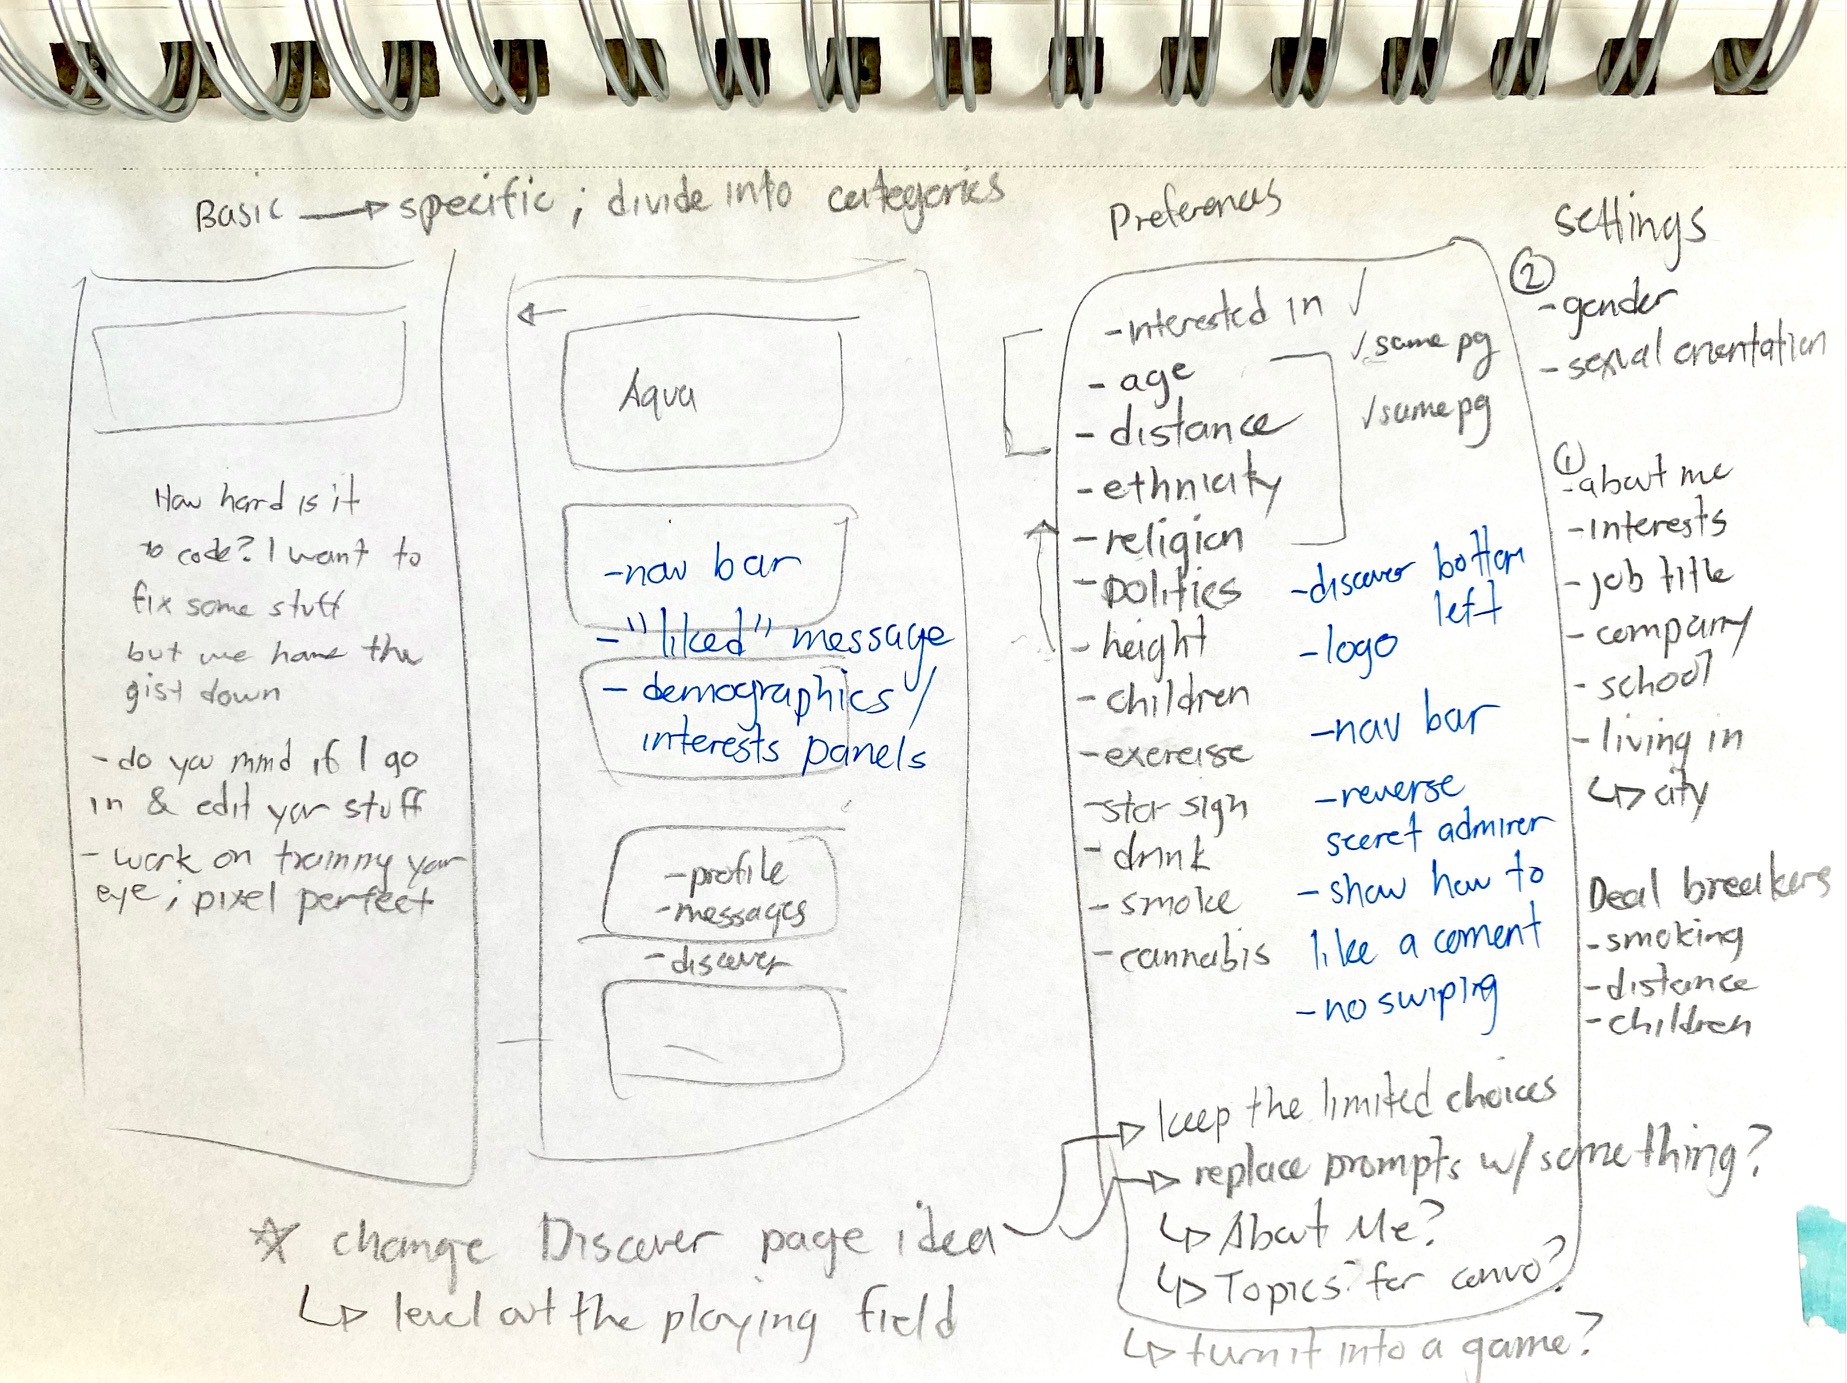 Basic → specific ; divide into categories
How hard is it
to code? I want to
fix some stuff
but we have the
gist down
- do you mind if I go
in & edit your stuff
- work on training your
eye ; pixel perfect
←
Aqua
- nav bar
- "liked" message
- demographics /
interests panels
- profile
- messages
- discover
Preferences
- interested in ✓
✓ same pg
- age
- distance
✓ same pg
- ethnicity
- religion
- politics
- height
- children
- exercise
- star sign
- drink
- smoke
- cannabis
- discover bottom
left
- logo
- nav bar
- reverse
secret admirer
- show how to
like a coment
- no swiping
settings
②
- gender
- sexual orientation
①
- about me
- interests
- job title
- company
- school
- living in
↳ city
Deal breakers
- smoking
- distance
- children
☆ change Discover page idea
↳ level out the playing field
→ keep the limited choices
→ replace prompts w/ something?
↳ About Me?
↳ Topics for convo?
↳ turn it into a game?